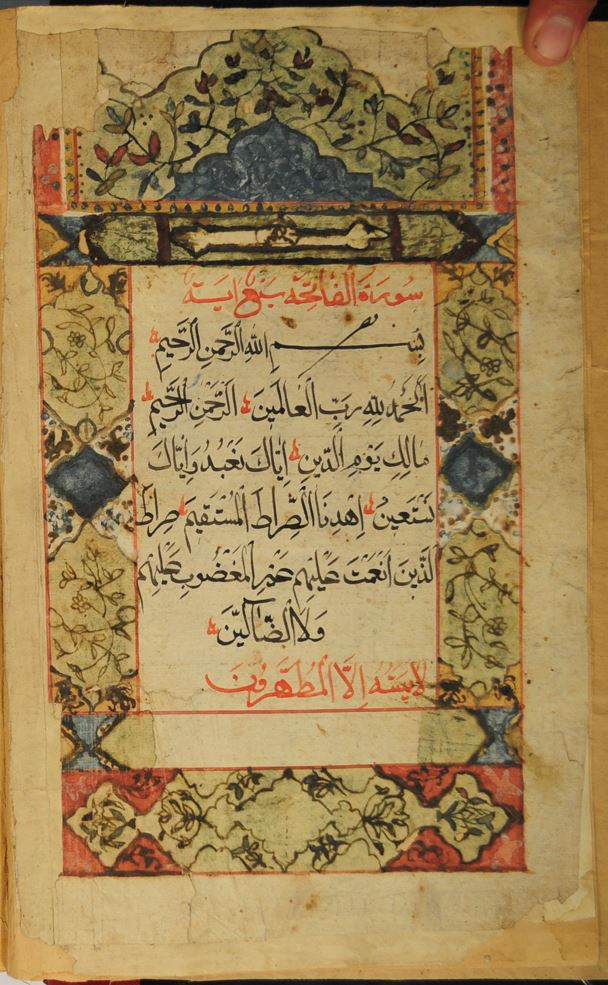 سورة الفاتحه سبع اية
بِسْمِ اللهِ الرَّحْمٰنِ الرَّحِيمِ
اَلْحَمْدُ لِلّٰهِ رَبِّ الْعَالَمِينَ الرَّحْمٰنِ الرَّحِيمِ
مَالِكِ يَوْمِ الدِّينِ اِيَّاكَ نَعْبُدُ وَاِيَّاكَ
نَسْتَعِينُ اِهْدِنَا الصِّرَاطَ الْمُسْتَقِيمَ صِرَاطَ
الَّذِينَ اَنْعَمْتَ عَلَيْهِمْ غَيْرِ الْمَغْضُوبِ عَلَيْهِمْ
وَلَا الضَّالِّينَ
لا يمسه اِلَّا الْمُطَهَّرُونَ